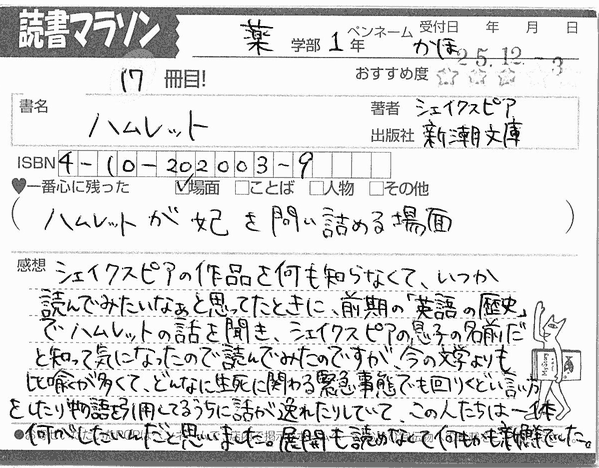 読書マラソン
薬 学部 1 年 ペンネーム かほ 受付日 年 月 日
25.12.-3
17 冊目!
おすすめ度 ☆☆☆
書名 ハムレット
著者 シェイクスピア
出版社 新潮文庫
ISBN 4-10-202003-9
♥一番心に残った ☑場面 □ことば □人物 □その他
(ハムレットが妃を問い詰める場面)
感想 シェイクスピアの作品を何も知らなくて、いつか
読んでみたいなぁと思ってたときに、前期の「英語の歴史」
でハムレットの話を聞き、シェイクスピアの息子の名前だ
と知って気になったので読んでみたのですが、今の文学よりも
比喩が多くて、どんなに生死に関わる緊急事態でも回りくどい言い方
をしたり物語を引用してるうちに話が逸れたりしていて、この人たちは一体
何がしたいんだと思いました。展開も読めなくて何もかも新鮮でした。